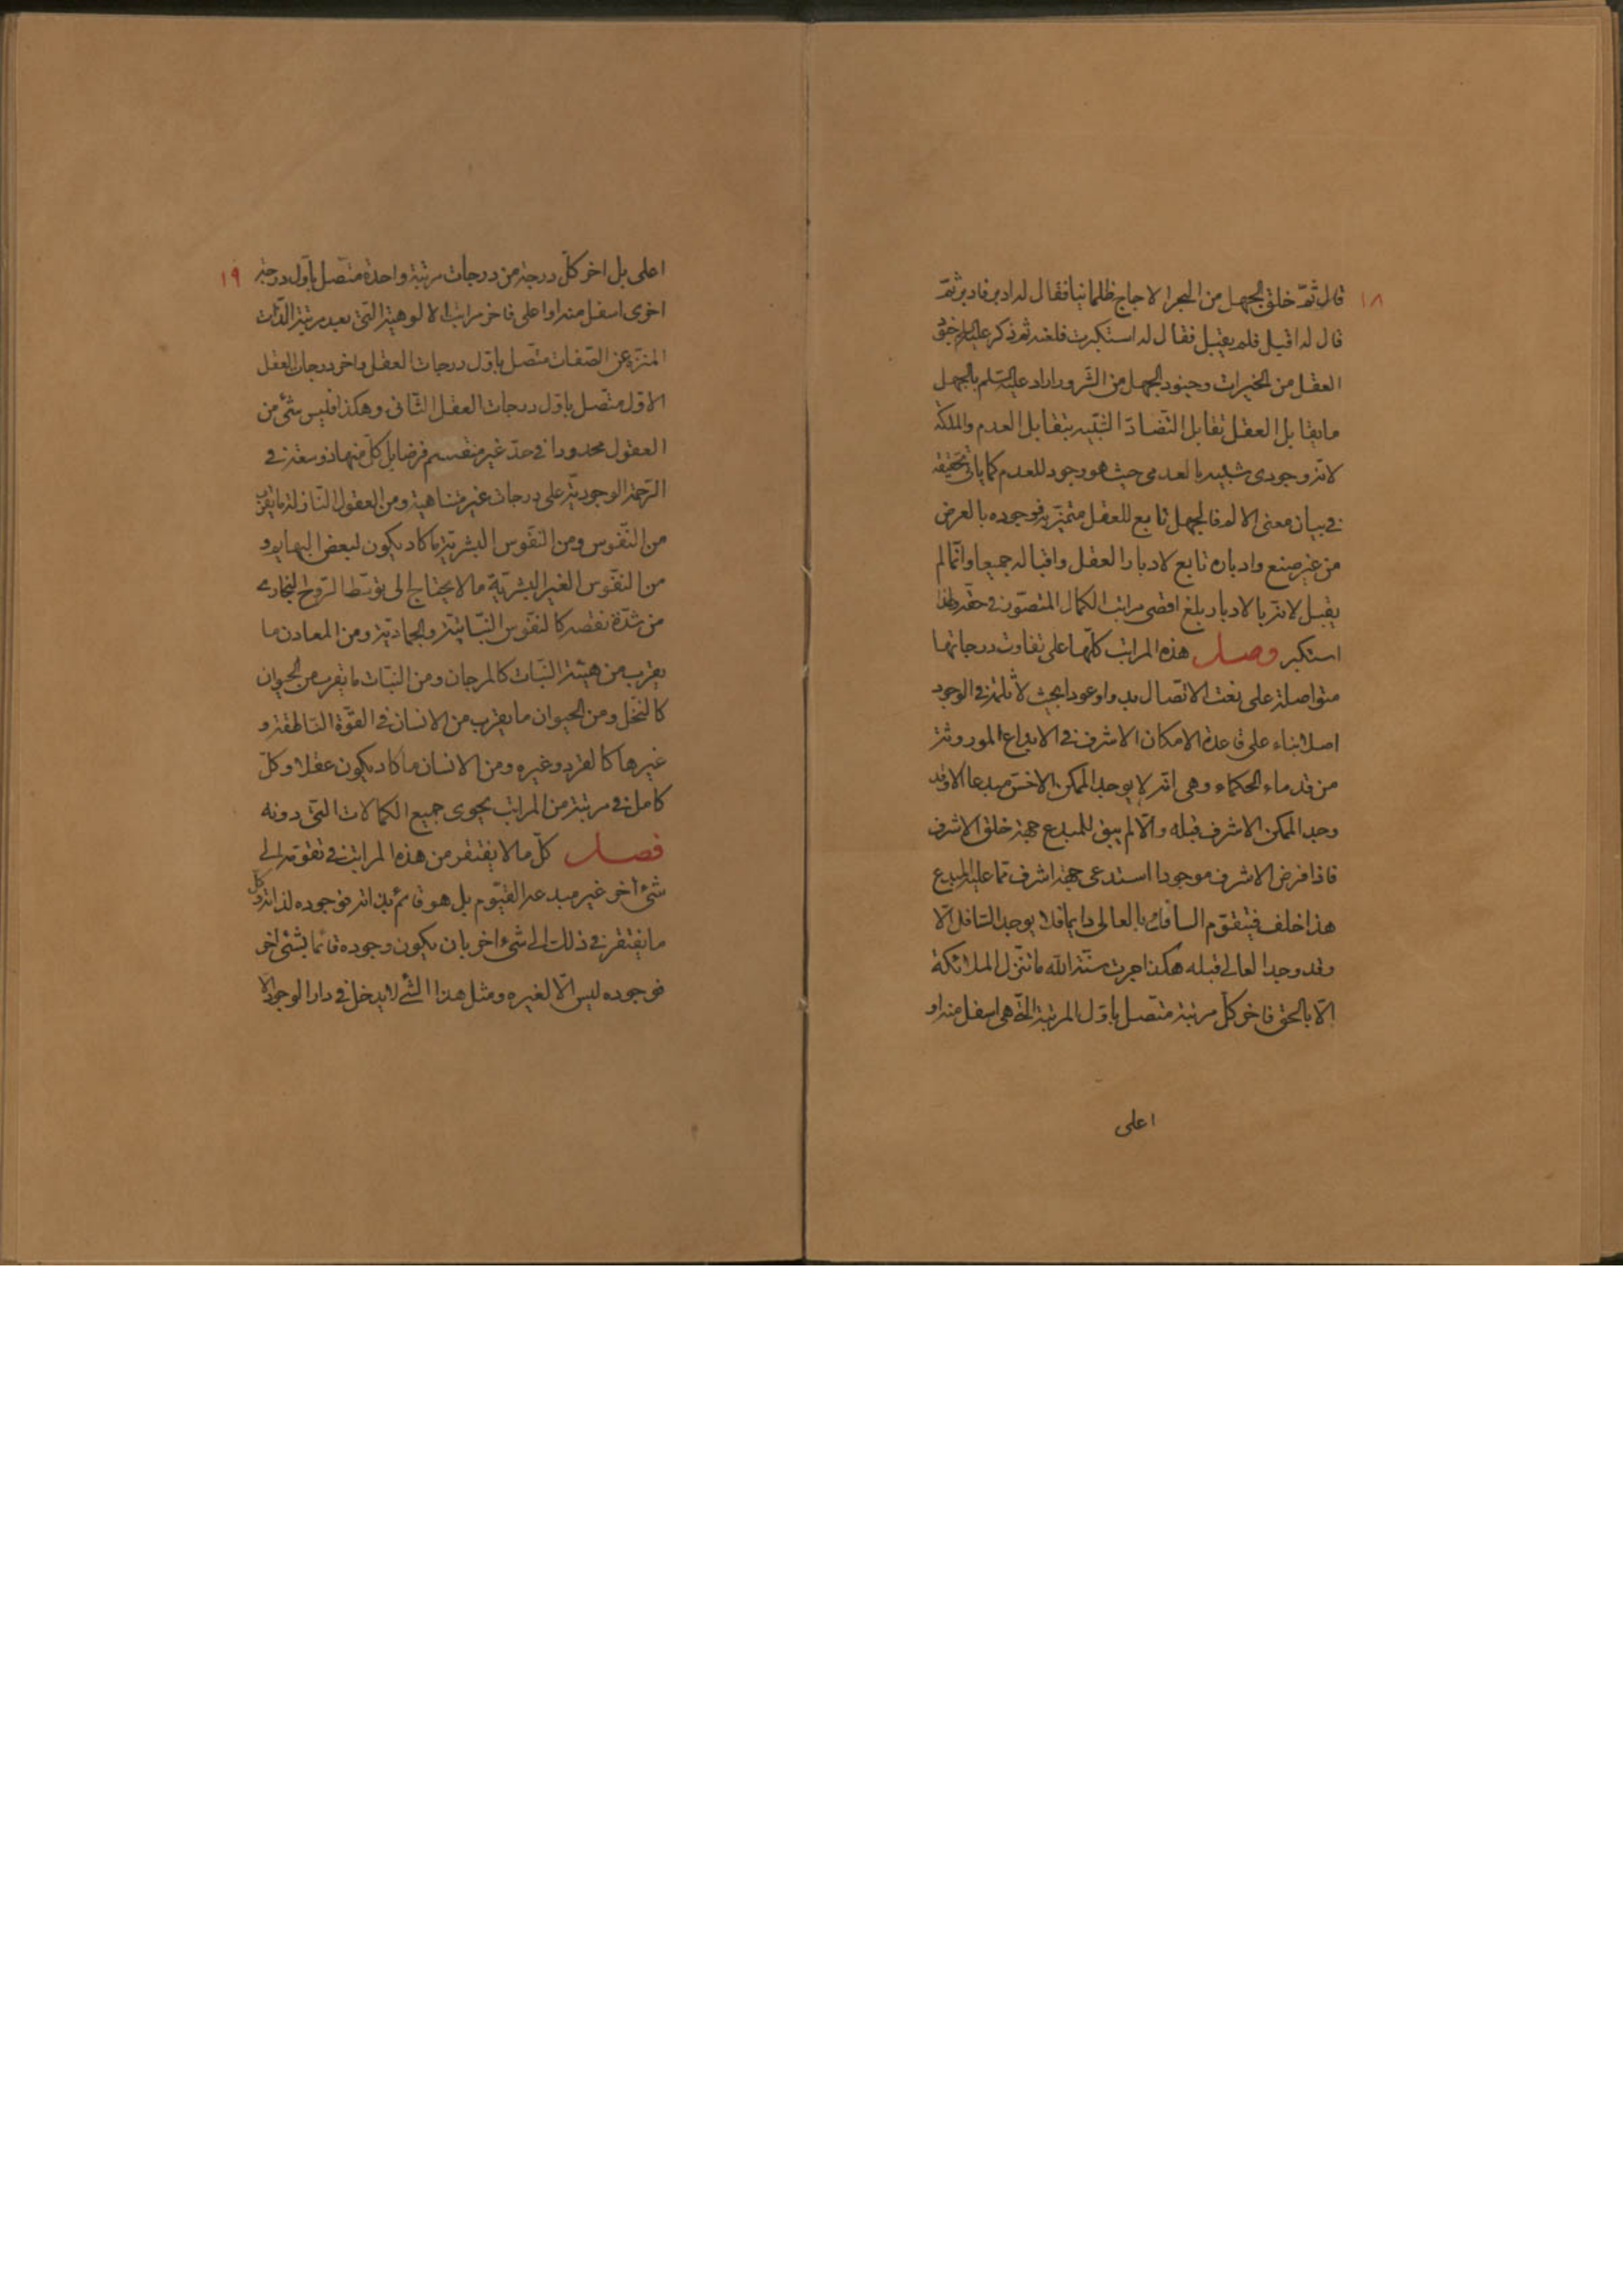 ١٨
قال ثمّ خلق الجهل من البحر الاجاج ظلمانيا فقال له ادبر فادبر ثمّ
قال له اقبل فلم يقبل فقال له استكبرت فلعنه ثم ذكر عليه السلام جنود
العقل من الخيرات وجنود الجهل من الشرور واراد عليه السّلم بالجهل
ما يقابل العقل تقابل التضادّ الشبيه بتقابل العدم والملكة
لانّه وجودى شبيه بالعدمى حيث هو وجود للعدم كما ياتى تحقيقه
فى بيان معنى الالم فالجهل تابع للعقل متميّز به فوجوده بالعرض
من غير صنع وادباره تابع لادبار العقل واقباله جميعا وانّما لم
يقبل لانّه بالادبار بلغ اقصى مراتب الكمال المتصوّر فى حقّه ولهذا
استكبر وصل هذه المراتب كلّها على تفاوت درجاتها
متواصلة على نعت الاتّصال بدوا وعودا بحيث لا ثلمة فى الوجود
اصلا بناء على قاعدة الامكان الاشرف فى الابداع الموروثة
من قدماء الحكماء وهى انّه لا يوجد الممكن الاخسّ مبدعا الا وقد
وجد الممكن الاشرف قبله والّا لم يبق للمبدع جهة خلق الاشرف
فاذا فرض الاشرف موجودا استدعى جهة اشرف ممّا عليه المبدع
هذا خلف فيتقوّم السافل بالعالى دايما فلا يوجد السّافل الّا
وقد وجد العالى قبله هكذا جرت سنّة الله ما تنزّل الملائكة
الّا بالحق فاخر كلّ مرتبة متّصل باوّل المرتبة الّتى هى اسفل منه او
اعلى
١٩
اعلى بل اخر كلّ درجة من درجات مرتبة واحدة متّصل باوّل درجة
اخرى اسفل منه او اعلى فاخر مراتب الالوهية الّتى بعد مرتبة الذّات
المنزّه عن الصّفات متّصل باوّل درجات العقل واخر درجات العقل
الاول متّصل باوّل درجات العقل الثّانى وهكذا فليس شئ من
العقول محدودا فى حدّ غير منقسم فرضا بل كلّ منها ذو سعة فى
الرّحمة الوجوديّة على درجات غير متناهية ومن العقول النّازلة ما يقرب
من النّفوس ومن النّفوس البشريّة ما كاد يكون لبعض البهايم و
من النفوس الغير البشريّة ما لا يحتاج الى توسّط الرّوح البخارى
من شدّة نقصه كالنفوس النّباتيّة والجماديّة ومن المعادن ما
يقرب من هيئة النّبات كالمرجان ومن النّبات ما يقرب من الحيوان
كالنّخل ومن الحيوان ما يقرب من الانسان فى القوّة النّاطقة و
غيرها كالقرد وغيره ومن الانسان ما كاد يكون عقلا وكلّ
كامل فى مرتبة من المراتب يحوى جميع الكمالات الّتى دونه
فصل كلّ ما لا يفتقر من هذه المراتب فى تقوّمه الى
شئ اخر غير مبدعه القيّوم بل هو قائم بذاته فوجوده لذاته وكل
ما يفتقر فى ذلك الى شئ اخر بان يكون وجوده قائما بشئ اخر
فوجوده ليس الّا لغيره ومثل هذا الشئ لا يدخل فى دار الوجود الا